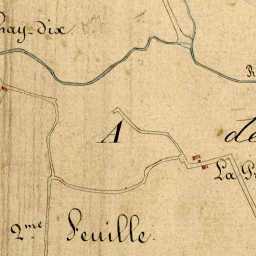 nay-dix
R
A
de
La P
2.me Feuille.